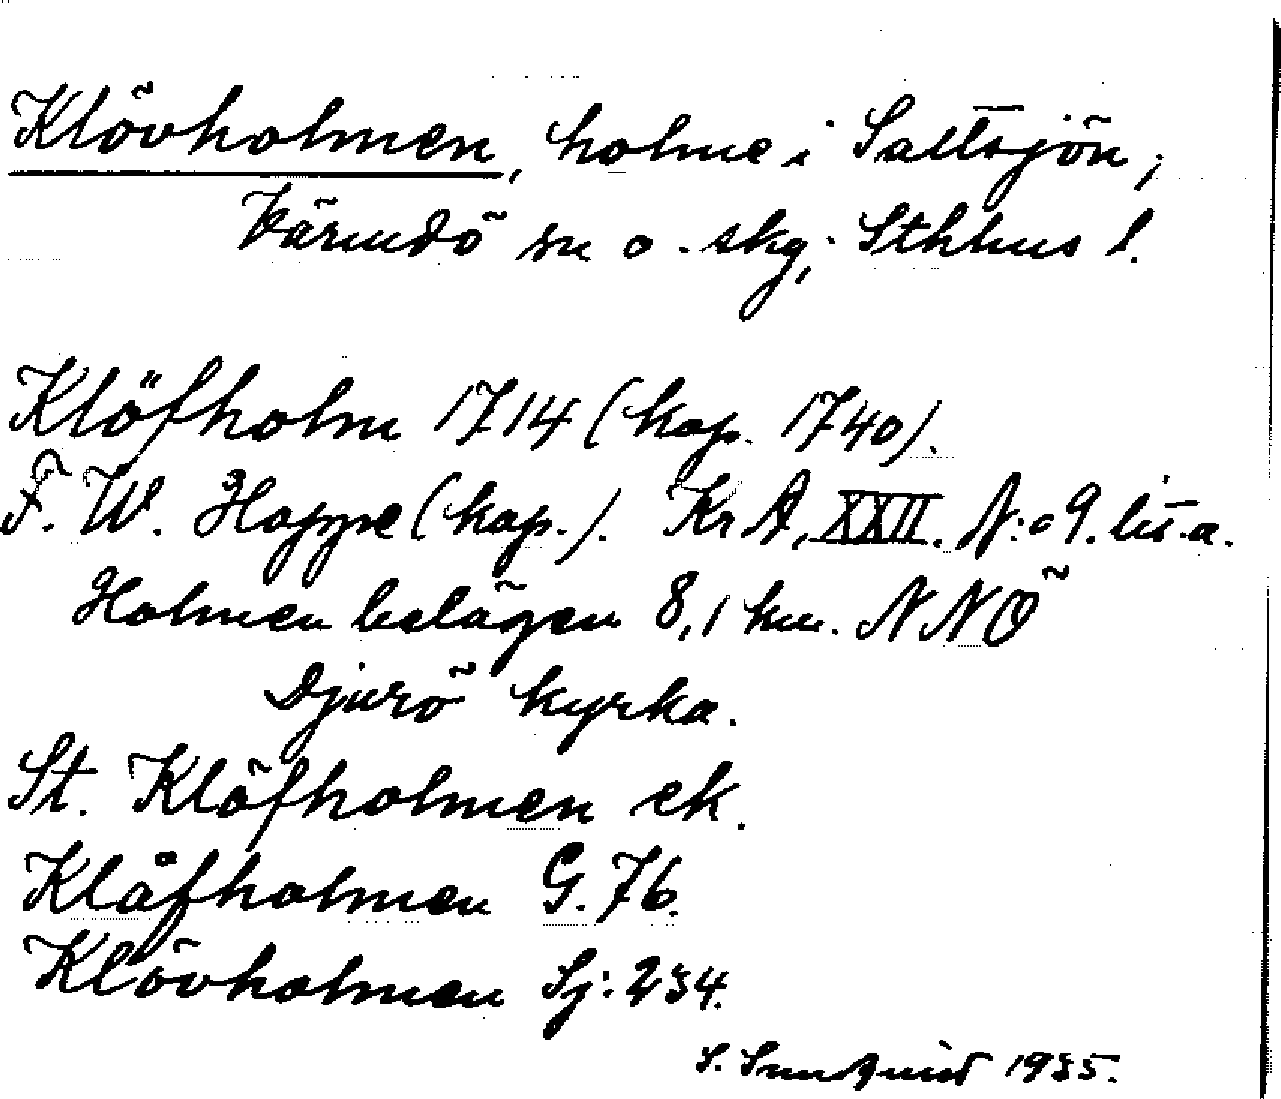 Klövholmen, holme i Saltsjön,
Värmdö sn o. skg; Sthlms l.
Klöfholm 1714 (kop. 1740).
F. W. Hoppe (kop.). KrA, XXII. N:o 9. lit. a.
Holmen belägen 8,1 km. NNÖ
Djurö kyrka.
St. Klöfholmen ek.
Klåfholmen G. 76.
Klövholmen Sj: 234.
S. 1935.